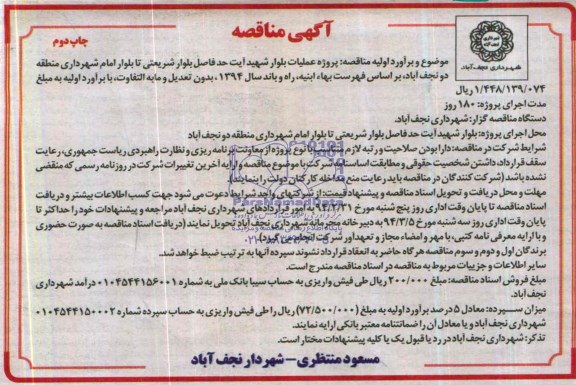 آگهی مناقصه
چاپ دوم
شهرداری نجف آباد
موضوع و برآورد اولیه مناقصه: پروژه عملیات بلوار شهید آیت حد فاصل بلوار شریعتی تا بلوار امام شهرداری منطقه
دو نجف آباد، بر اساس فهرست بهاء ابنیه، راه و باند سال ۱۳۹۴، بدون تعدیل و مابه التفاوت، با برآورد اولیه به مبلغ
۱/۴۴۸/۱۳۹/۰۷۴ ریال
مدت اجرای پروژه: ۱۸۰ روز
دستگاه مناقصه گزار: شهرداری نجف آباد.
محل اجرای پروژه: بلوار شهید آیت حد فاصل بلوار شریعتی تا بلوار امام شهرداری منطقه دو نجف آباد
شرایط شرکت در مناقصه: دارا بودن صلاحیت و رتبه لازم متناسب با نوع پروژه از معاونت برنامه ریزی و نظارت راهبردی ریاست جمهوری، رعایت
سقف قرارداد، داشتن شخصیت حقوقی و مطابقت اساسنامه شرکت با موضوع مناقصه و ارایه آخرین تغییرات شرکت در روزنامه رسمی که منقضی
نشده باشد (شرکت کنندگان در مناقصه باید رعایت منع مداخله کارکنان دولت را بنمایند).
مهلت و محل دریافت و تحویل اسناد مناقصه و پیشنهاد قیمت: از شرکتهای واجد شرایط دعوت می شود جهت کسب اطلاعات بیشتر و دریافت
اسناد مناقصه تا پایان وقت اداری روز پنج شنبه مورخ ۹۴/۲/۳۱ به امور قراردادهای شهرداری نجف آباد مراجعه و پیشنهادات خود را حداکثر تا
پایان وقت اداری روز سه شنبه مورخ ۹۴/۳/۵ به دبیرخانه محرمانه شهرداری نجف آباد تحویل نمایند (دریافت اسناد مناقصه به صورت حضوری
و با ارایه معرفی نامه کتبی، با مهر و امضاء مجاز و تعهدآور شرکت انجام می گیرد).
برندگان اول و دوم و سوم مناقصه هرگاه حاضر به انعقاد قرارداد نشوند سپرده آنها به ترتیب ضبط خواهد شد.
سایر اطلاعات و جزییات مربوط به مناقصه در اسناد مناقصه مندرج است.
مبلغ فروش اسناد مناقصه: مبلغ ۲۰۰/۰۰۰ ریال طی فیش واریزی به حساب سیبا بانک ملی به شماره ۰۱۰۴۵۴۴۱۵۶۰۰۱ درآمد شهرداری
نجف آباد.
میزان سپرده: معادل ۵ درصد برآورد اولیه به مبلغ (۷۲/۵۰۰/۰۰۰) ریال را طی فیش واریزی به حساب سپرده شماره ۰۱۰۴۵۴۴۱۵۰۰۰۲
شهرداری نجف آباد و یا معادل آن را ضمانتنامه معتبر بانکی ارایه نمایند.
تذکر: شهرداری نجف آباد در رد یا قبول یک یا کلیه پیشنهادات مختار است.
مسعود منتظری - شهردار نجف آباد